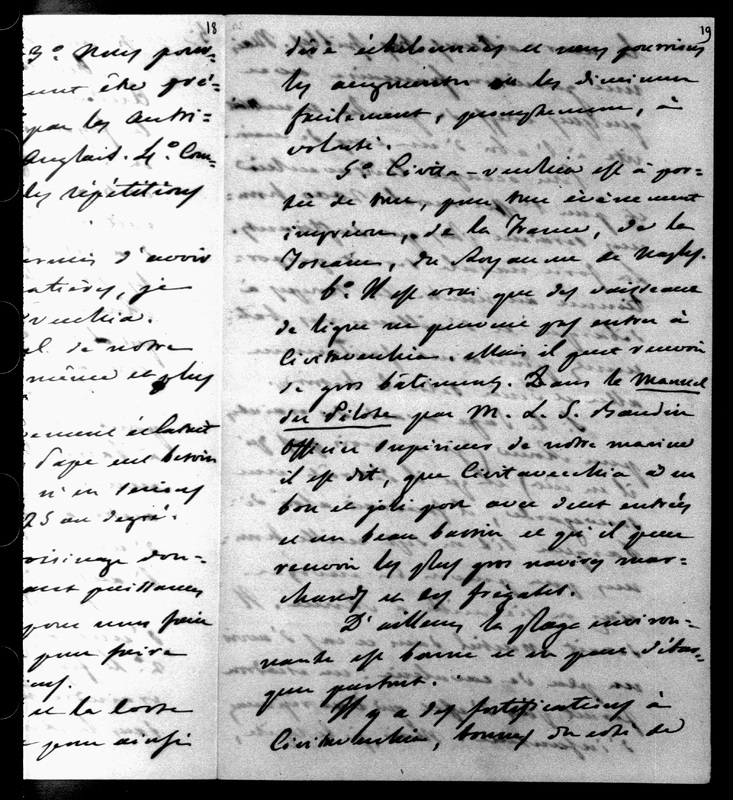 18
3º Nous pour-
être pré-
par les Autri-
Anglais. 4º Com-
les répétitions
d'avoir
je
vecchia.
de notre
même et plus
éclatait
Pape eut besoin
n'en serions
25 au degré.
voisinage don-
puissances
pour nous faire
pour faire
et la
pour ainsi
19
dire échelonnées et nous pourrions
les augmenter ou les diminuer
facilement, promptement, à
volonté.
5º Civita-vecchia est à por-
tée de tout, pour tout évènement
imprévu, de la France, de la
Toscane, du Royaume de Naples.
6º Il est vrai que des vaisseaux
de ligne ne peuvent pas entrer à
Civitavecchia. Mais il peut recevoir
de gros bâtiments. Dans le Manuel
du Pilote par M. L. S. Baudin
Officier Supérieur de notre marine
il est dit, que Civitavecchia a un
bon et joli port avec deux entrées
et un beau bassin et qu'il peut
recevoir les plus gros navires mar-
chands et des frégates.
D'ailleurs la plage environ-
nante est bonne et on peut débar-
quer partout.
Il y a des fortifications à
Civitavecchia, bonnes du coté de